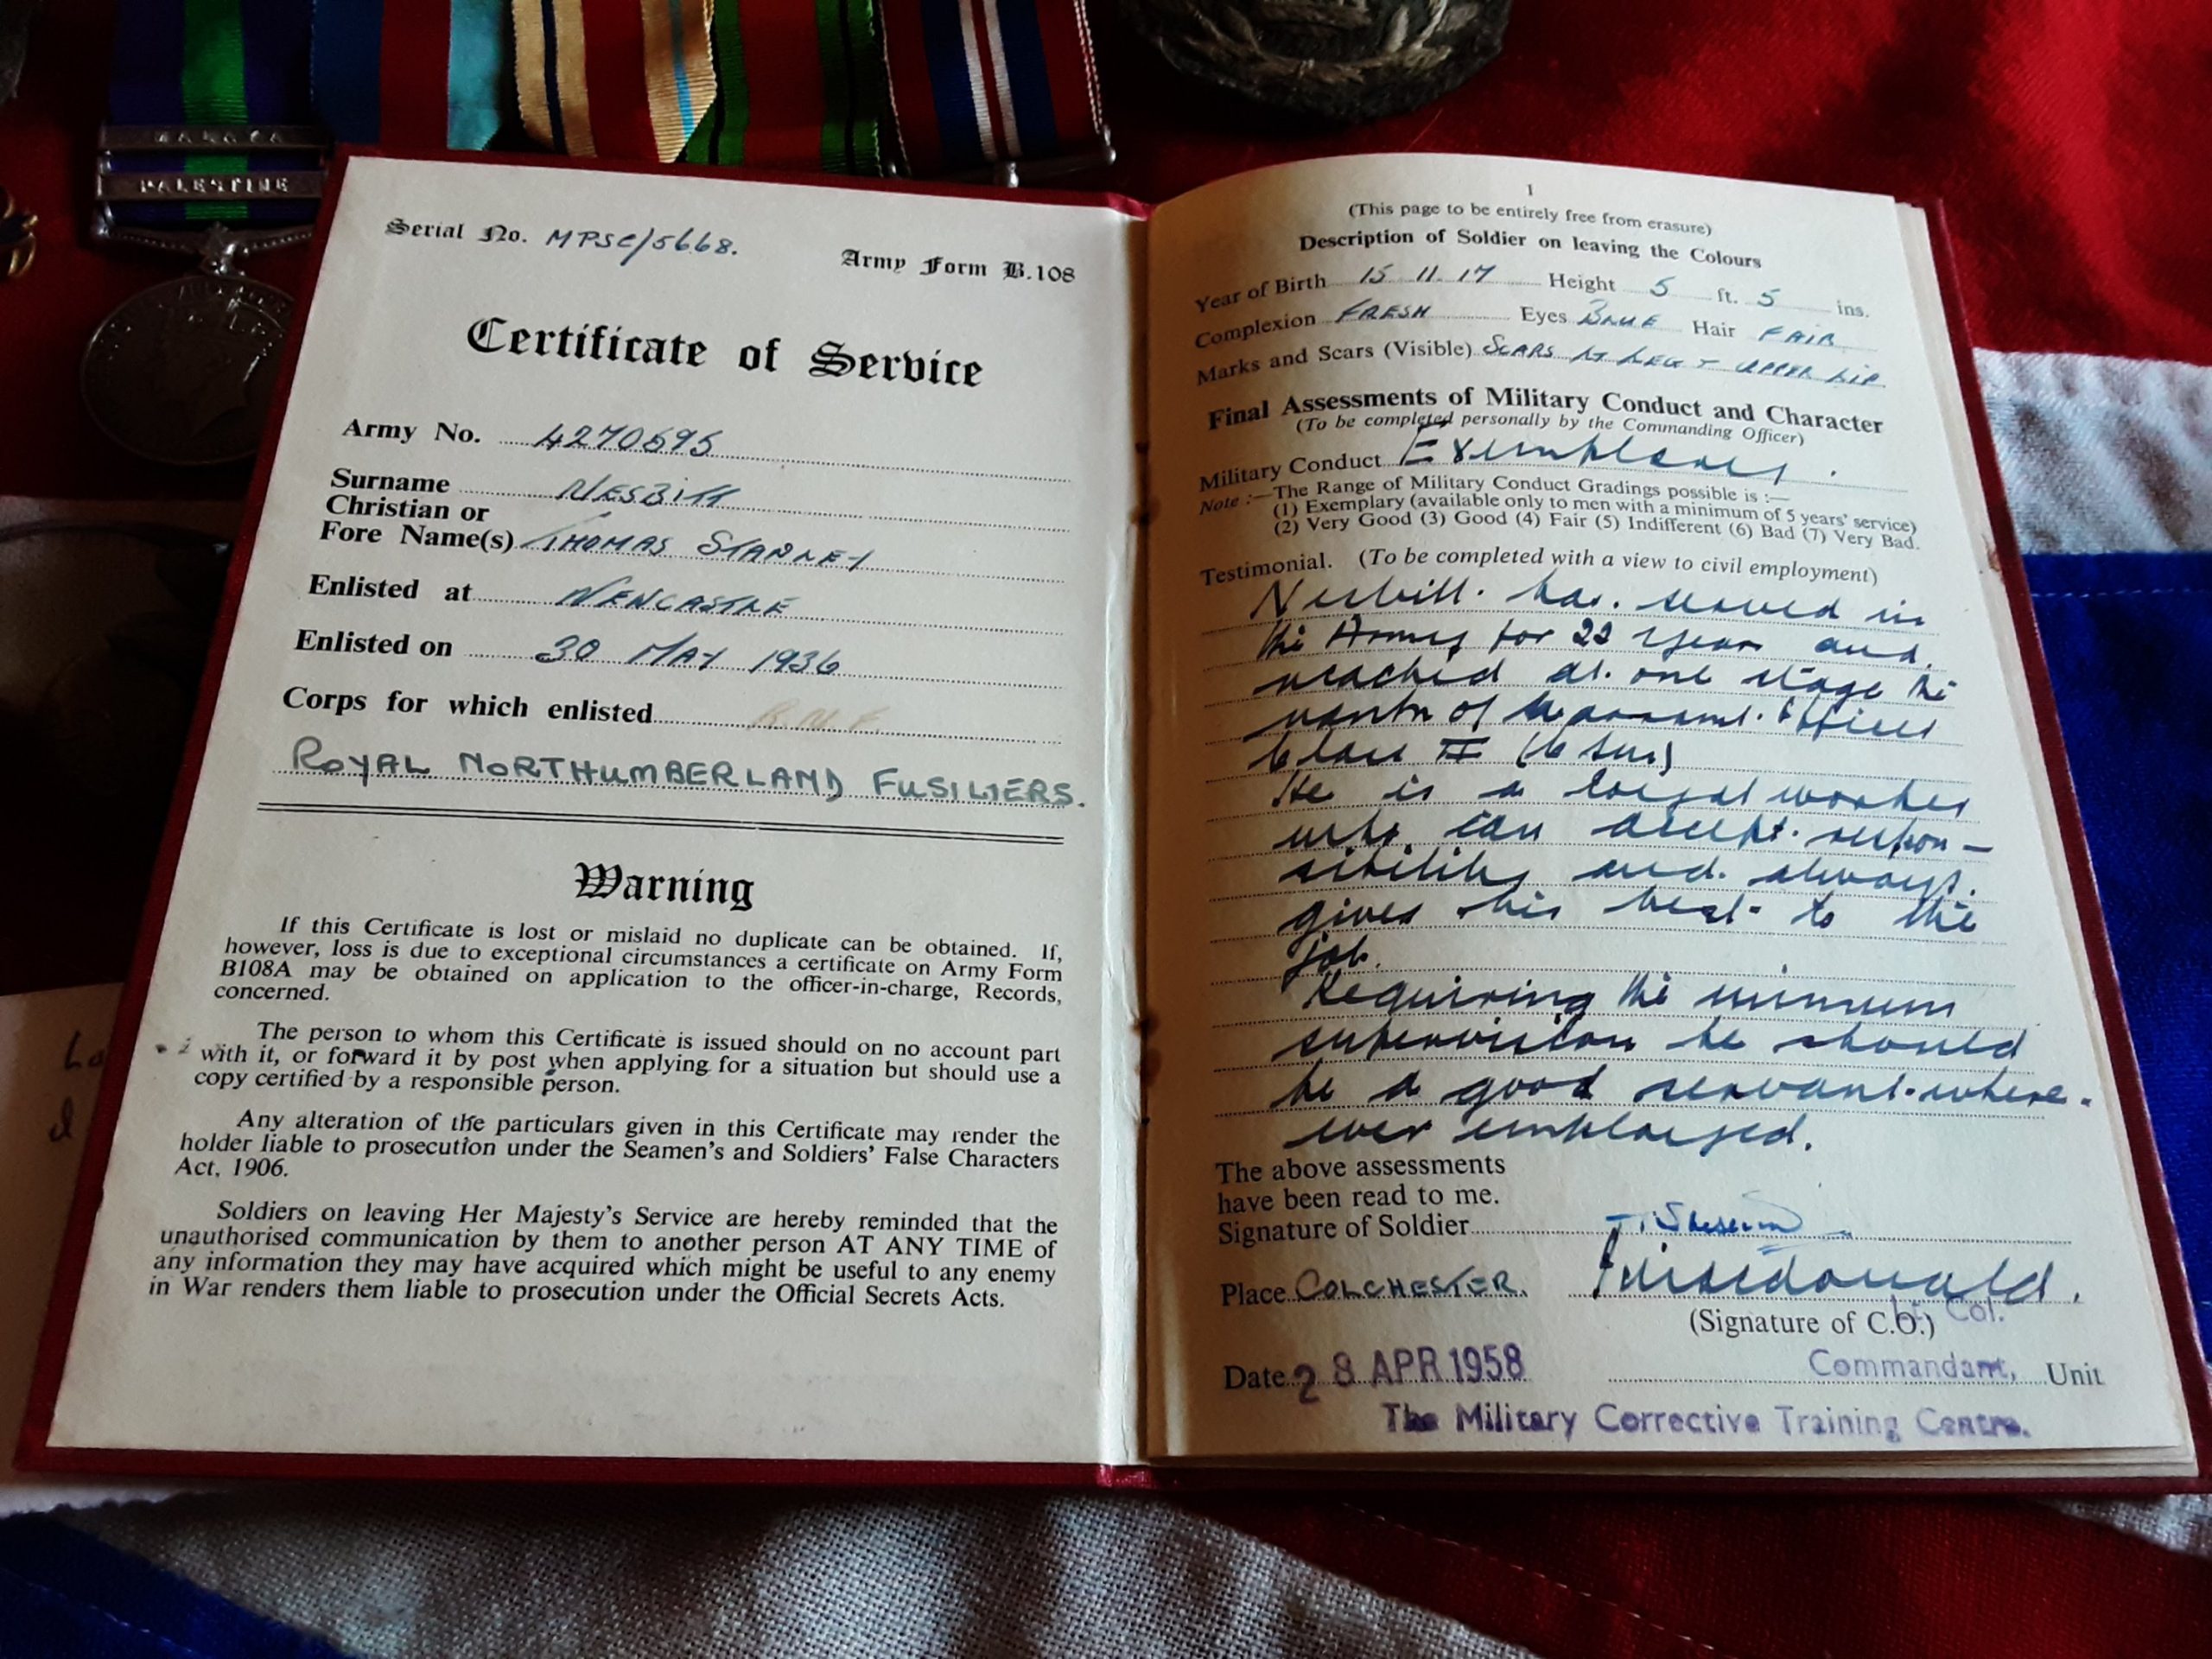 MALAYA
PALESTINE
Serial No. MPSC/5668.
Army Form B.108
Certificate of Service
Army No. 4270595
Surname NESBITT
Christian or
Fore Name(s) THOMAS STANLEY
Enlisted at NEWCASTLE
Enlisted on 30 MAY 1936
Corps for which enlisted R.N.F.
ROYAL NORTHUMBERLAND FUSILIERS.
Warning
If this Certificate is lost or mislaid no duplicate can be obtained. If,
however, loss is due to exceptional circumstances a certificate on Army Form
B108A may be obtained on application to the officer-in-charge, Records,
concerned.
The person to whom this Certificate is issued should on no account part
with it, or forward it by post when applying for a situation but should use a
copy certified by a responsible person.
Any alteration of the particulars given in this Certificate may render the
holder liable to prosecution under the Seamen's and Soldiers' False Characters
Act, 1906.
Soldiers on leaving Her Majesty's Service are hereby reminded that the
unauthorised communication by them to another person AT ANY TIME of
any information they may have acquired which might be useful to any enemy
in War renders them liable to prosecution under the Official Secrets Acts.
1
(This page to be entirely free from erasure)
Description of Soldier on leaving the Colours
Year of Birth 15 11 17 Height 5 ft. 5 ins.
Complexion FRESH Eyes BLUE Hair FAIR
Marks and Scars (Visible) SCARS LT LEG + UPPER LIP
Final Assessments of Military Conduct and Character
(To be completed personally by the Commanding Officer)
Military Conduct Exemplary.
Note :—The Range of Military Conduct Gradings possible is :—
(1) Exemplary (available only to men with a minimum of 5 years' service)
(2) Very Good (3) Good (4) Fair (5) Indifferent (6) Bad (7) Very Bad.
Testimonial. (To be completed with a view to civil employment)
Nesbitt. has. served in
the Army for 22 years and
reached at one stage the
rank of Warrant Officer
Class II
He is a loyal worker
who can accept respon-
sibility and always
gives his best to the
job.
Requiring the minimum
supervision he should
be a good servant where-
ever employed.
The above assessments
have been read to me.
Signature of Soldier
Place COLCHESTER.
Lt. Col.
(Signature of C.O.)
Date 28 APR 1958
Commandant, Unit
The Military Corrective Training Centre.